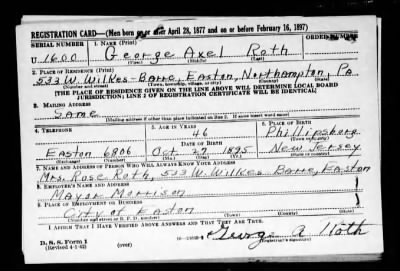 REGISTRATION CARD—(Men born on or after April 28, 1877 and on or before February 16, 1897)
SERIAL NUMBER 1. NAME (Print) ORDER NUMBER
U 1600 George Axel Roth
(First) (Middle) (Last)
2. PLACE OF RESIDENCE (Print)
533 W. Wilkes-Barre, Easton, Northampton, Pa
(Number and street) (Town, township, village, or city) (County) (State)
[THE PLACE OF RESIDENCE GIVEN ON THE LINE ABOVE WILL DETERMINE LOCAL BOARD
JURISDICTION; LINE 2 OF REGISTRATION CERTIFICATE WILL BE IDENTICAL]
3. MAILING ADDRESS
Same
[Mailing address if other than place indicated on line 2. If same insert word same]
4. TELEPHONE 5. AGE IN YEARS 6. PLACE OF BIRTH
46 Phillipsburg
DATE OF BIRTH (Town or county)
Easton 6806 Oct 27 1895 New Jersey
(Exchange) (Number) (Mo.) (Day) (Yr.) (State or country)
7. NAME AND ADDRESS OF PERSON WHO WILL ALWAYS KNOW YOUR ADDRESS
Mrs. Rose Roth, 533 W. Wilkes Barre, Easton
8. EMPLOYER'S NAME AND ADDRESS
Mayor Morrison
9. PLACE OF EMPLOYMENT OR BUSINESS
City of Easton
(Number and street or R. F. D. number) (Town) (County) (State)
I AFFIRM THAT I HAVE VERIFIED ABOVE ANSWERS AND THAT THEY ARE TRUE.
D. S. S. Form 1
(Revised 4-1-42) (over) George A Roth
(Registrant's signature)